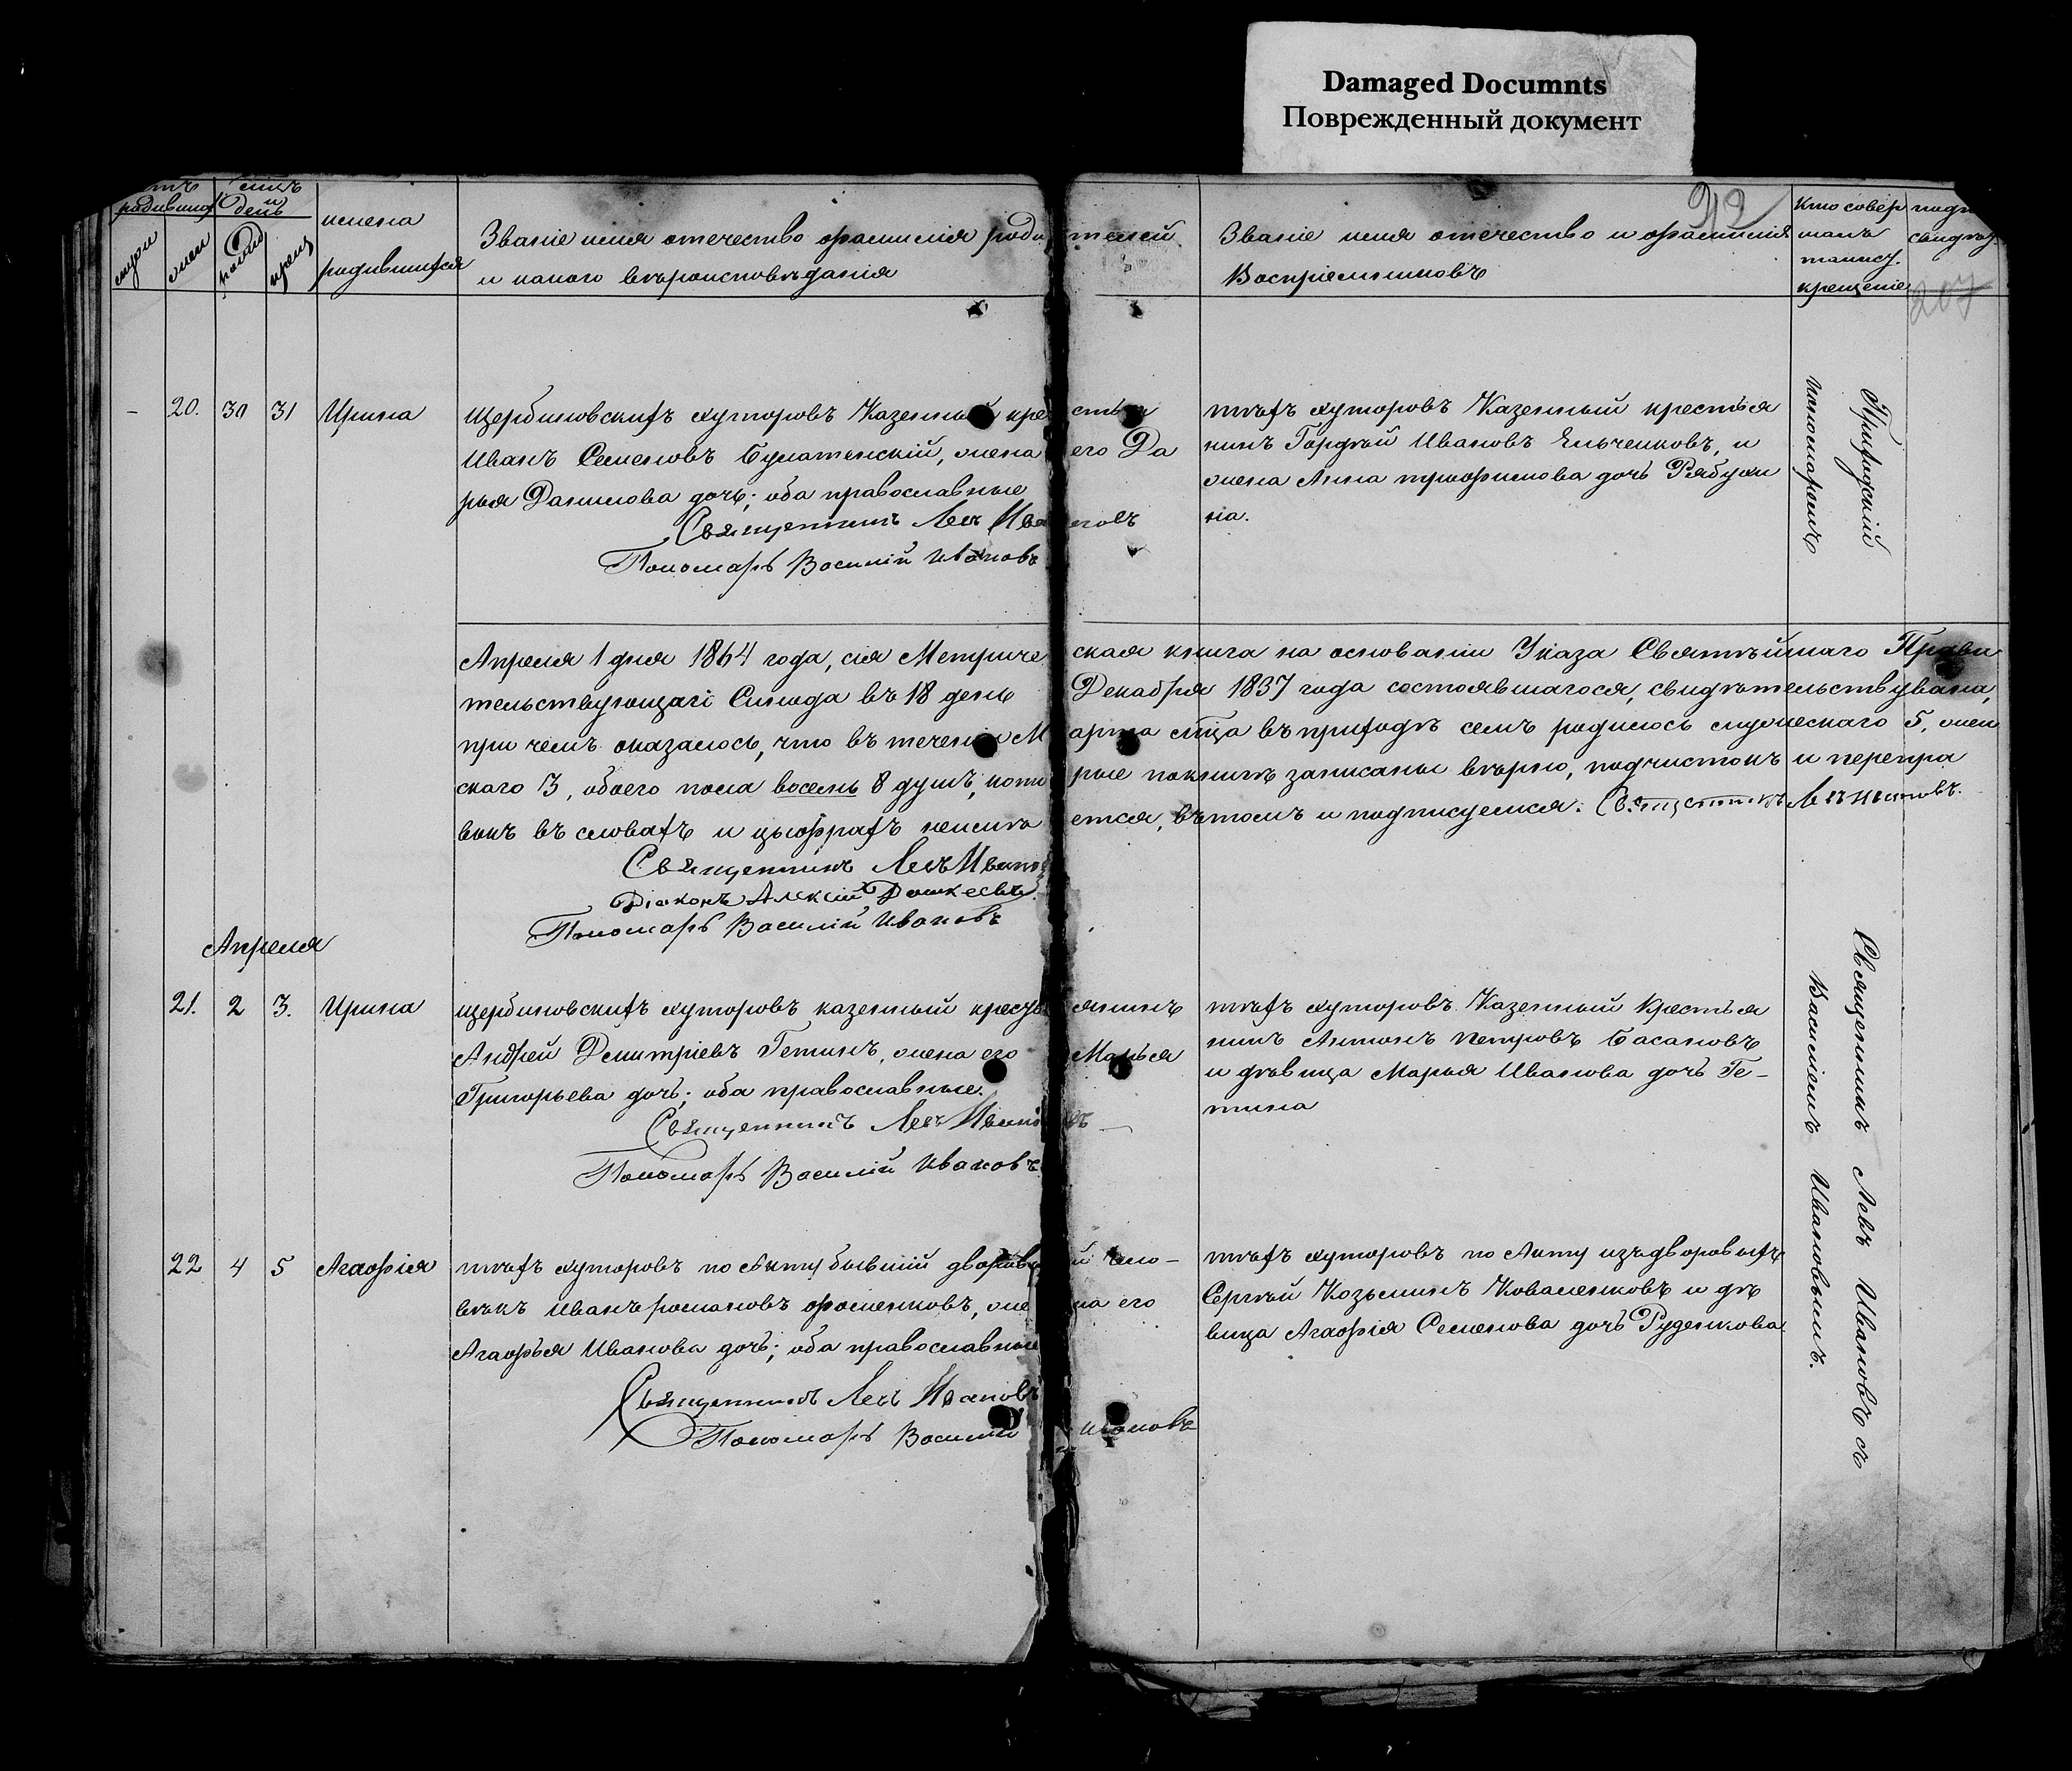 Damaged Documnts
Поврежденный документ
родивших
день
мужи
жен
рожд
крещ
имена
родившихся
Званіе имя отечество фамилія родителей
и какого вѣроисповѣданія
Званіе имя отечество и фамилія
Воспріемниковъ
Кто совер
шалъ
таинст.
крещеніе
212
207
– 20. 30 31 Ирина
Щербиновскихъ хуторовъ Казенный крестья
Иванъ Семеновъ Булатенскій, жена его Да
рья Данилова дочь; оба православные
Священникъ Левъ Ивановъ
Пономарь Василій Ивановъ
тѣхъ хуторовъ Казенный крестья
нинъ Гордѣй Ивановъ Ильченковъ, и
жена Анна трофимова дочь Рябухи
на.
Приходскій
Апреля 1 дня 1864 года, сія Метрическая книга на основаніи Указа Святѣйшаго Прави
тельствующаго Синода въ 18 день Декабря 1837 года состоявшагося, свидѣтельствувана,
при чемъ оказалось, что въ теченіи Марта мца въ приходѣ семъ родилось мужескаго 5, жен
скаго 3, обоего пола восемь 8 душъ, которые по книгѣ записаны вѣрно, подчистокъ и перепра
вокъ въ словахъ и цыфрахъ неимѣется, вътомъ и подписуемся. Священникъ Левъ Ивановъ.
Священникъ Левъ Ивановъ
Діаконъ Алексій Дошкеевъ
Пономарь Василій Ивановъ
Апреля
21. 2 3. Ирина
щербиновскихъ хуторовъ казенный крестьянинъ
Андрей Дмитріевъ Гетинъ, жена его Марья
Григорьева дочь; оба православные.
Священникъ Левъ Ивановъ
Пономарь Василій Ивановъ
тѣхъ хуторовъ Казенный Крестья
нинъ Антонъ Петровъ Басановъ
и дѣвица Марья Иванова дочь Ге-
тина
Священникъ Левъ Ивановъ съ
Василіемъ Ивановымъ.
22 4 5 Агафія
тѣхъ хуторовъ по Акту бывшій дворовый чело-
вѣкъ Иванъ романовъ фоменковъ, жена его
Агафья Иванова дочь; оба православные
Священникъ Левъ Ивановъ
Пономарь Василій Ивановъ
тѣхъ хуторовъ по Акту изъ дворовыхъ
Сергѣй Козьминъ Коваленковъ и дѣ
вица Агафія Семенова дочь Руденкова